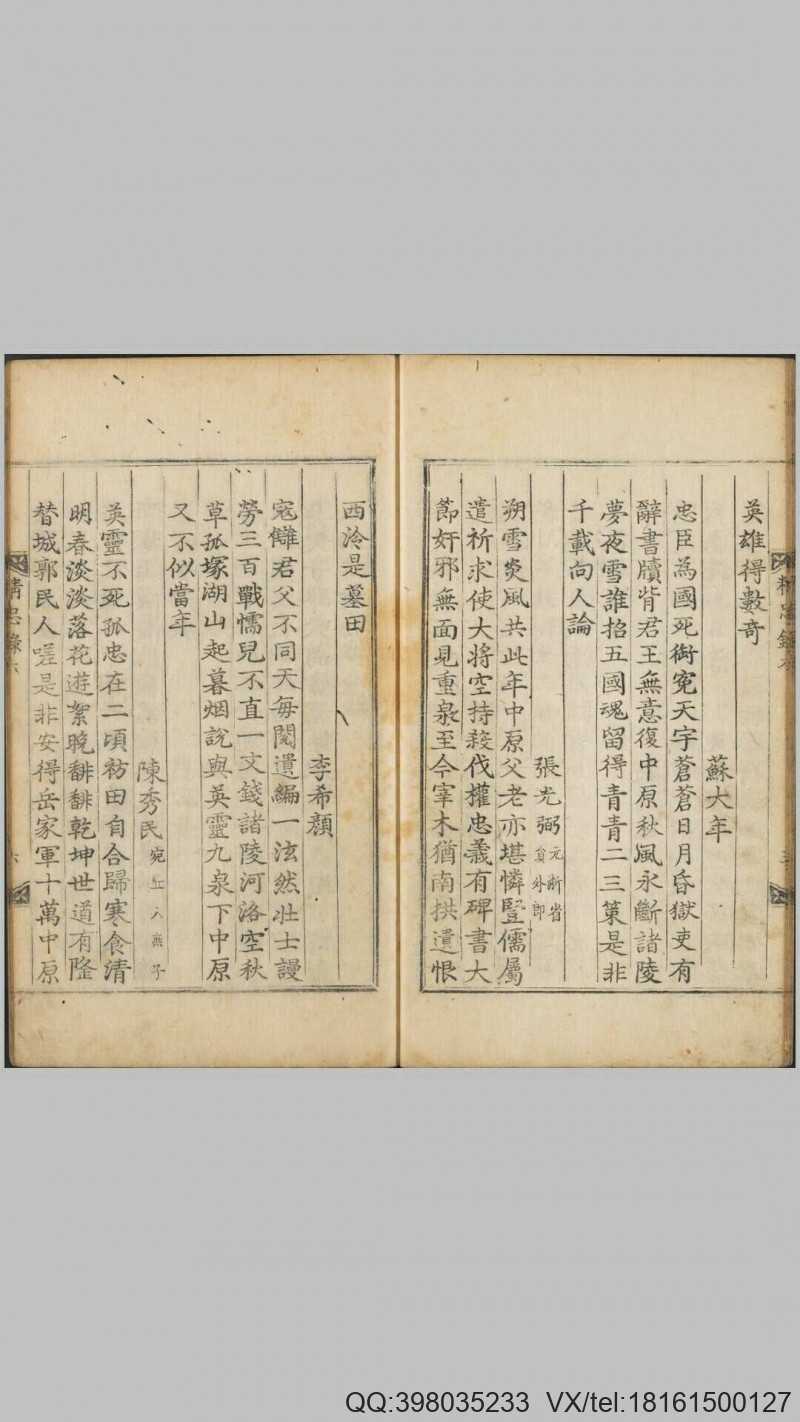 英雄得數奇
蘇大年
忠臣為國死銜寃天宇蒼蒼日月昏獄吏有
辭書牘背君王無意復中原秋風永斷諸陵
夢夜雪誰招五國魂留得青青二三策是非
千載向人論
張光弼元浙省員外郎
朔雪炎風共此年中原父老亦堪憐豎儒屬
遣祈求使大將空持殺伐權忠義有碑書大
節奸邪無面見重泉至今宰木猶南拱遺恨
西泠是墓田
李希顏
寇讎君父不同天每閱遺編一泫然壯士謾
勞三百戰懦兒不直一文錢諸陵河洛空秋
草孤塚湖山起暮烟說與英靈九泉下中原
又不似當年
陳秀民
英靈不死孤忠在二頃祊田自合歸寒食清
明春淡淡落花遊絮晚馡馡乾坤世道有隆
替城郭民人嗟是非安得岳家軍十萬中原
精忠錄六
QQ:398035233 VX/tel:18161500127